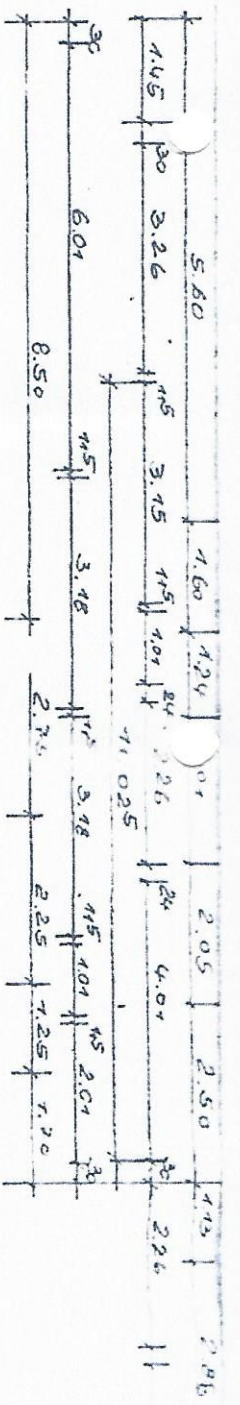 5.60 1.60 1.24 01 2.05 2.50 1.13
1.45 30 3.26 11⁵ 3.15 11⁵ 1.01 24 26 24 4.01 30 2.26
11.025
30 6.01 11⁵ 3.18 11⁵ 3.18 11⁵ 1.01 11⁵ 2.01 30
8.50 2.75 2.25 1.25 1.70